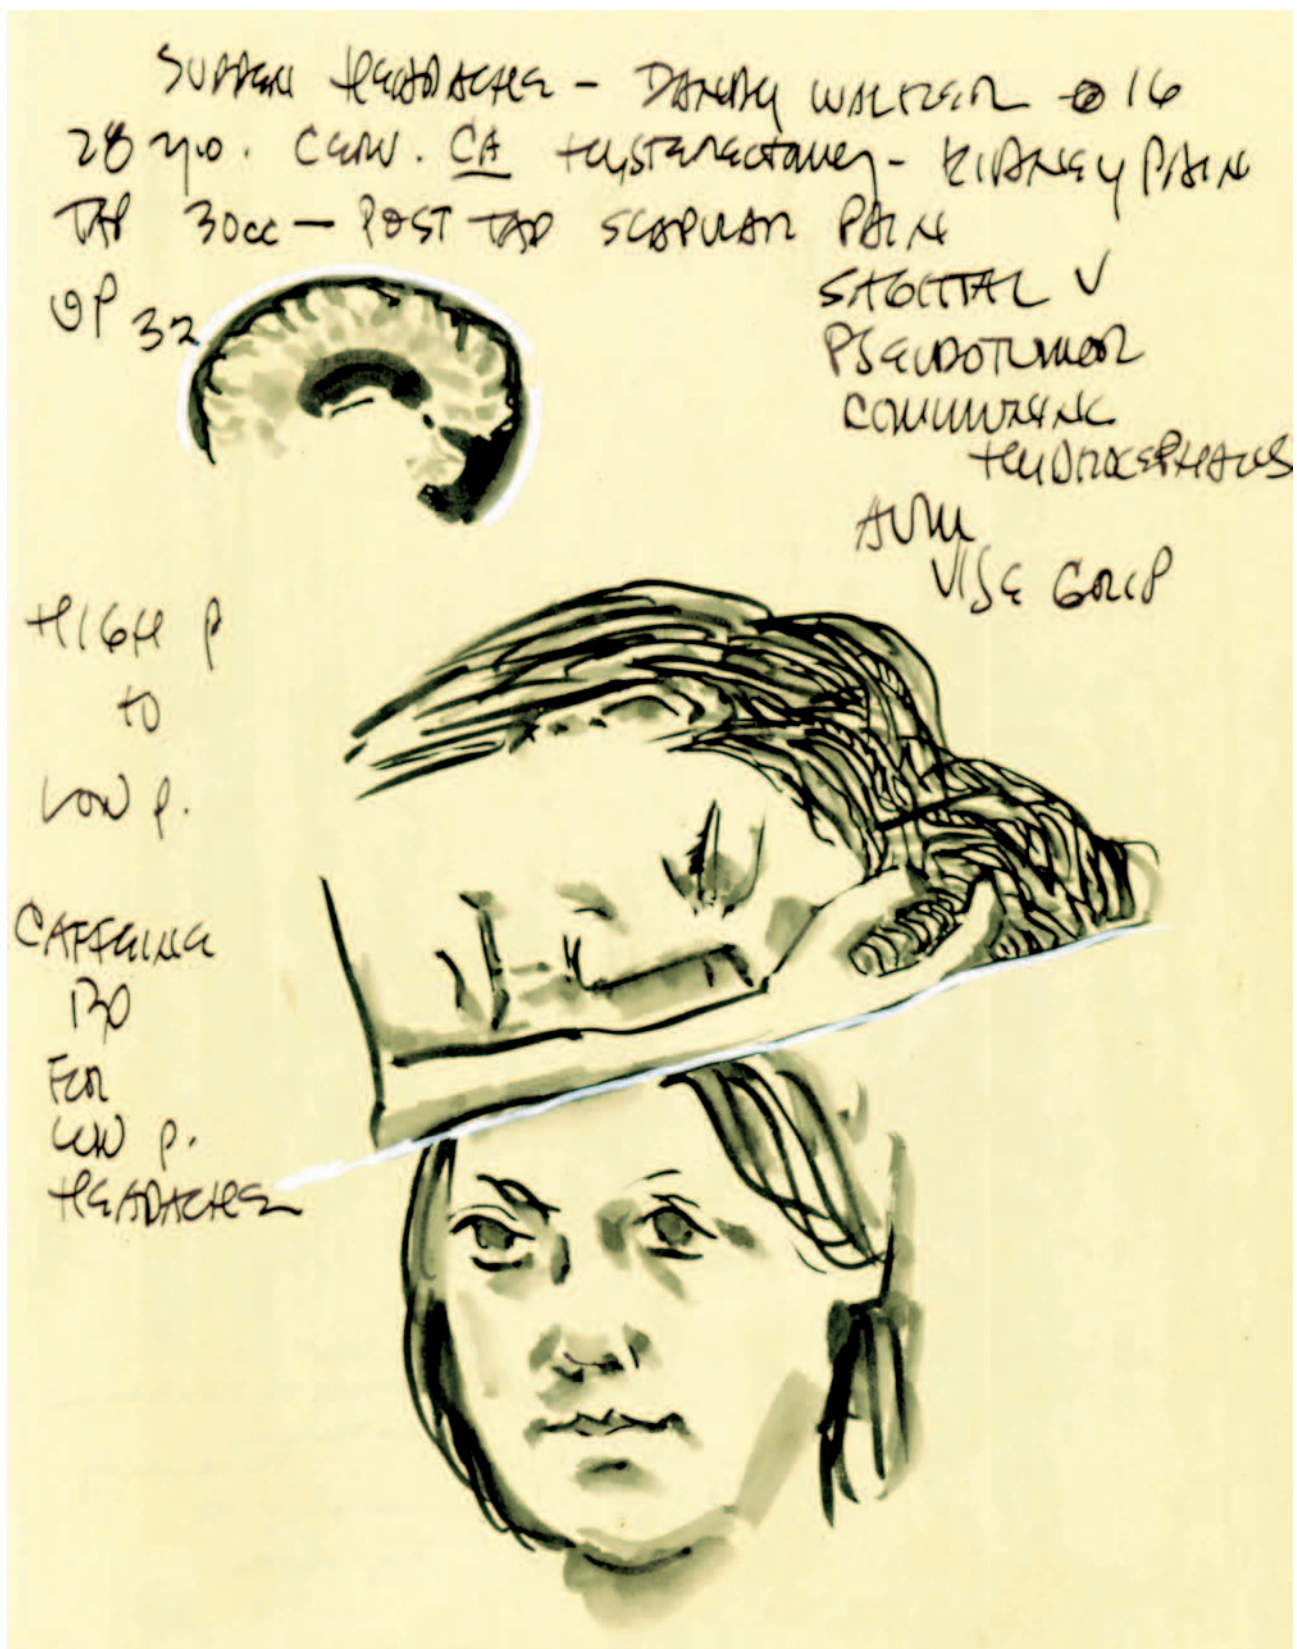 SUDDEN HEADACHE - DANDY WALKER @ 16
28 y.o. CERV. CA HYSTERECTOMY - KIDNEY PAIN
TAP 30cc — POST TAP SCAPULAR PAIN
OP 32
SAGITTAL V
PSEUDOTUMOR
COMMUNINC
HYDROCEPHALUS
AVM
VISE GRIP
HIGH P
to
LOW P.
CAFFEINE
PO
FOR
LOW P.
HEADACHE